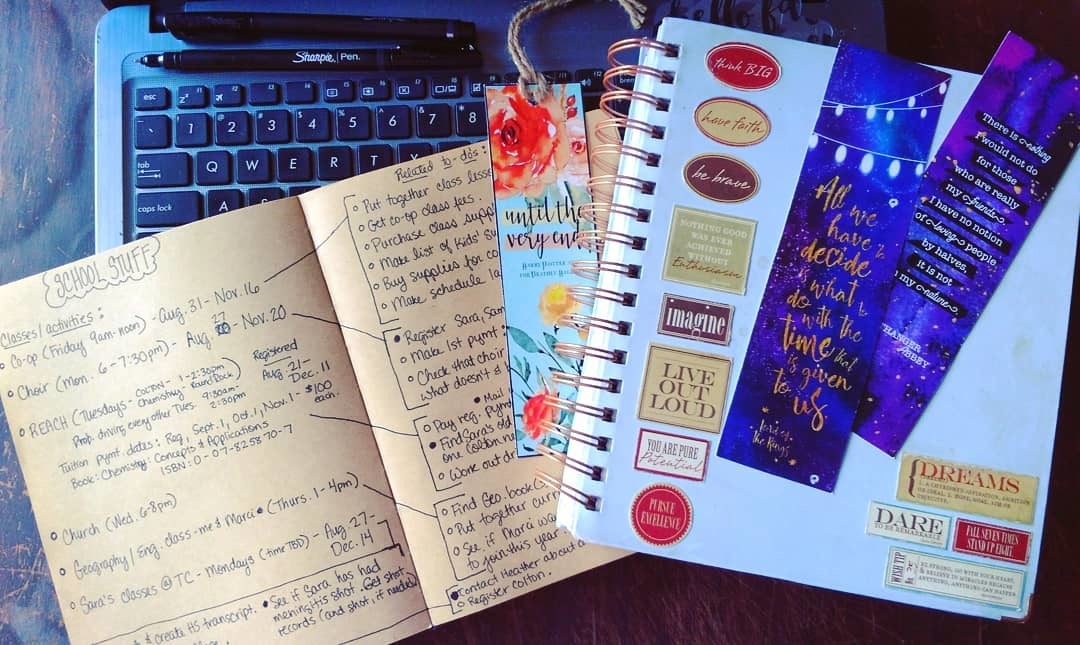 Sharpie Pen.
hello
esc
F11
F12
1
2
3
4
5
6
7
8
tab
Q
W
E
R
T
caps lock
A
SCHOOL STUFF
Classes/activities:
Co-op (Friday 9am-noon) - Aug. 31 - Nov. 16
Choir (Mon. 6-7:30pm) - Aug 27 - Nov. 20
REACH (Tuesdays -
COLTON - 1-2:30pm
Chemistry Round Rock)
9:30am-
2:30pm
Registered
Aug. 21 -
Dec. 11
Prob. driving every other Tues.
Tuition pymt. dates: Reg, Sept. 1, Oct. 1, Nov. 1 - $100
each.
Book: Chemistry: Concepts & Applications
ISBN: 0-07-825870-7
Church (Wed. 6-8pm)
Geography/Eng. class - me & Marci (Thurs. 1-4pm)
Sara's classes @ TC - Mondays (time TBD) - Aug. 27 -
Dec. 14
See if Sara has had
meningitis shot. Get shot
records (and shot, if needed)
& create HS transcript.
Related to-dos:
Put together class
Get co-op class fees.
Purchase class
Make list of kids'
Buy supplies for
Make schedule
Register Sara, Sam
Make 1st pymt
Check that choir
what doesn't
Mail
Pay reg. pymt
Find Sara's old
one Colton
Work out
Find Geo. book
Put together
See if Marci
to join this year
Contact Heather about
Register Colton.
until the
very end
HARRY POTTER
THE DEATHLY
think BIG
have faith
be brave
NOTHING GOOD
WAS EVER
ACHIEVED
WITHOUT
Enthusiasm
imagine
LIVE
OUT
LOUD
YOU ARE PURE
Potential
PURSUE
EXCELLENCE
All we
have to
decide
is what
to
do with
the
time that
is given
to us
Lord of
the Rings
There is nothing
I would not do
for those
who are really
my friends
I have no notion
of loving people
by halves,
it is not
my nature
ABBEY
DREAMS
DARE
TO BE REMARKABLE
FALL SEVEN TIMES
STAND UP EIGHT
WISH TIP
BE STRONG, GO WITH YOUR HEART,
& BELIEVE IN MIRACLES BECAUSE
ANYTHING, ANYTHING CAN HAPPEN